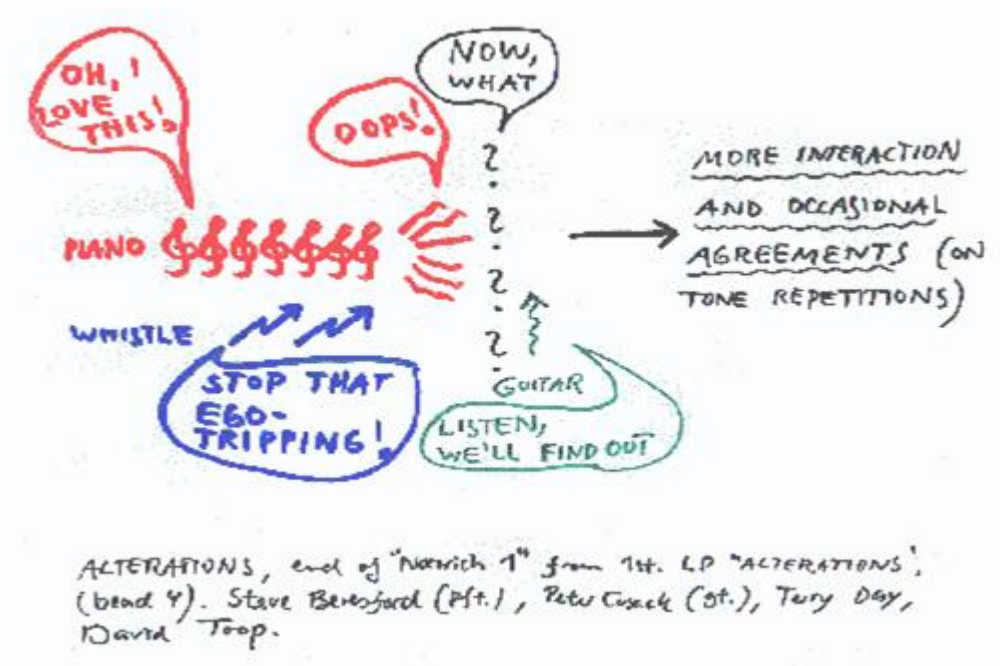 OH, I
LOVE
THIS!
OOPS!
NOW,
WHAT
?
?
?
?
PIANO
WHISTLE
STOP THAT
EGO-
TRIPPING!
GUITAR
LISTEN,
WE'LL FIND OUT
MORE INTERACTION
AND OCCASIONAL
AGREEMENTS (ON
TONE REPETITIONS)
ALTERATIONS, end of "Norwich 1" from 1st. LP "ALTERATIONS",
(bead 4). Steve Beresford (pft.), Peter Cusack (gt.), Terry Day,
David Toop.